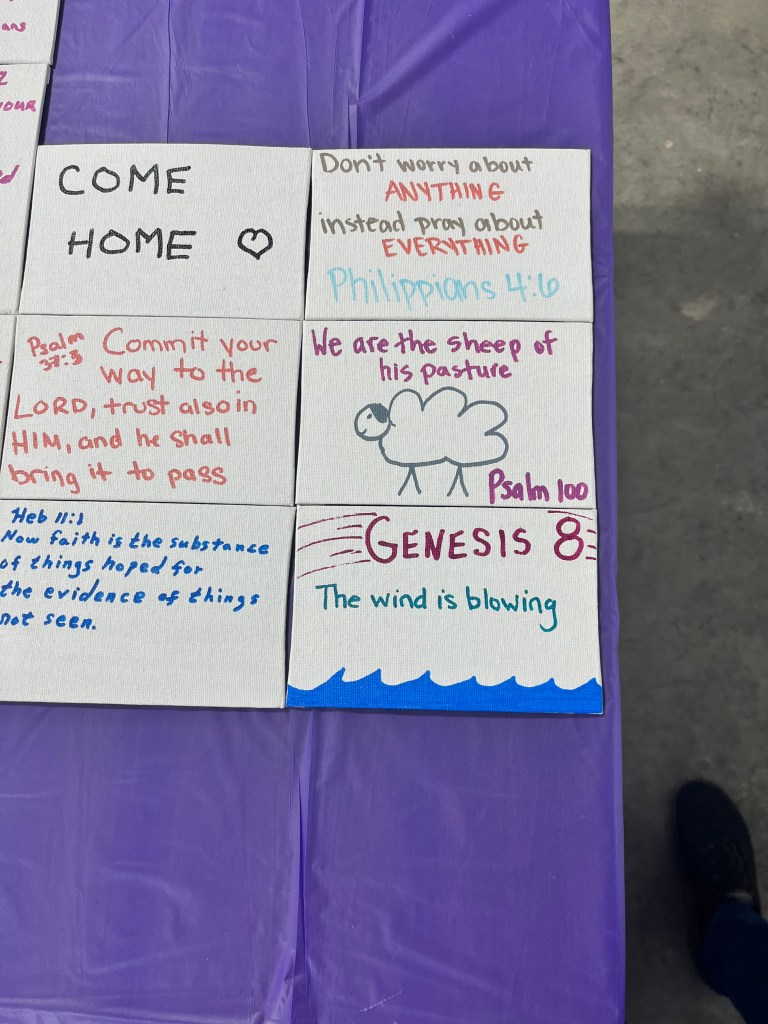 ans
YOUR
COME
HOME
Don't worry about
ANYTHING
instead pray about
EVERYTHING
Philippians 4:6
Psalm
37:5
Commit your
way to the
LORD, trust also in
HIM, and he shall
bring it to pass
We are the sheep of
his pasture
Psalm 100
Heb 11:1
Now faith is the substance
of things hoped for
the evidence of things
not seen.
GENESIS 8
The wind is blowing